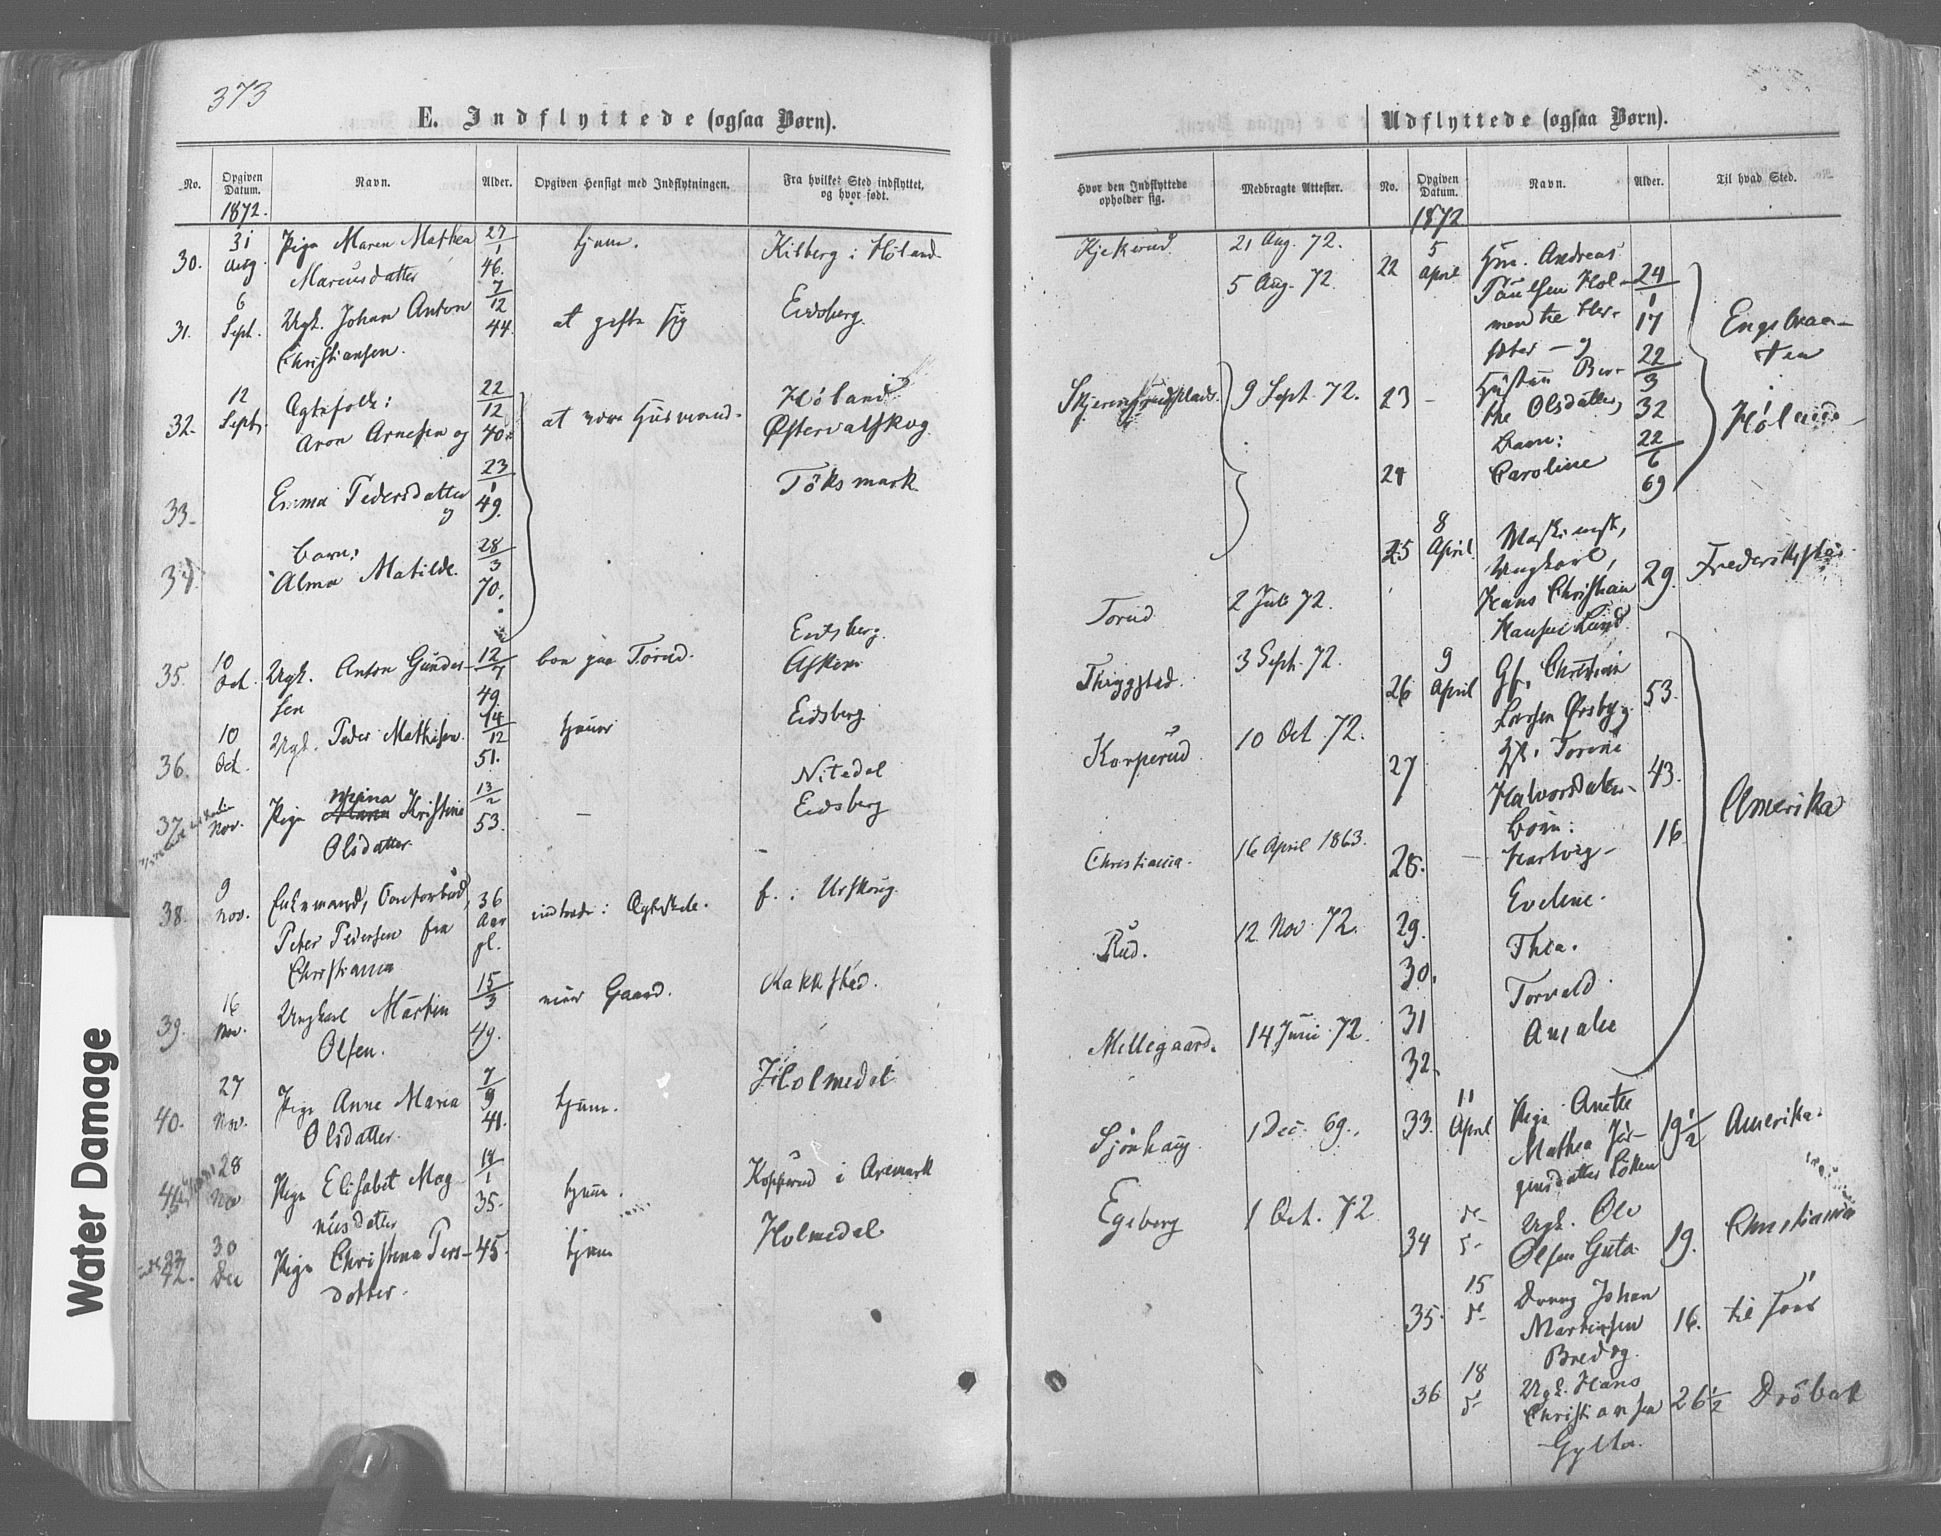 373
E. Indflyttede (ogsaa Børn).
No.
Opgiven Datum.
Navn.
Alder.
Opgiven Hensigt med Indflytningen.
Fra hvilket Sted indflyttet, og hvor født.
1872.
30. 31 Aug Pige Maren Mathea 27/1 46. tjene. Kilberg i Høland
Marcusdatter
31. 6 Sept. Ugk. Johan Anton 7/12 44. at gifte sig Eidsberg.
Christiansen.
32. 12 Sept. Ægtefolk: 22/12 40. at være Husmand. Høland
Aron Arnesen og Østervalskog.
33. Emma Pedersdatter 23/1 49. Töksmark
og
34. Barn:
Alma Matilde. 28/3 70.
35. 10 Oct. Ugk. Anton Gunder- 12/7 49. boe paa Torud. Eidsberg.
sen Askim
36. 10 Oct. Ugk. Peder Mathisen. 14/12 51. tjener Eidsberg
37. Nov. Pige Kristine 13/2 53. — Nitedal
Olsdatter Eidsberg
38. 9 Nov. Enkemand, 36 Aar gl. indtræde i Ægteskab. f. i Urskoug.
Peter Pedersen fra
Christiania
39. 16 Nov. Ungkarl Martin 15/3 49. Gaard. Rakkestad.
Olsen.
40. 27 Nov. Pige Anne Maria 7/9 41. tjene. Holmedal
Olsdatter.
28 Nov Pige Elisabet Mag- 18/1 35. tjene. Kopperud i Aremark
nusdatter
42. 30 Dec Pige Christina Pers- 45. tjene Holmedal
dotter.
Udflyttede (ogsaa Børn).
Hvor den Indflyttede opholder sig.
Medbragte Attester.
No.
Opgiven Datum.
Navn.
Alder.
Til hvad Sted.
1872
Kjekerud 21 Aug. 72.
5 Aug. 72.
9 Sept. 72.
Torud 2 Juli 72.
Thriggstad. 3 Sept. 72.
Korperud 10 Oct. 72.
Christiania. 16 April 1863.
Rud. 12 Nov 72.
Mellegaard. 14 Juni 72.
Sjönhaug 1 Dec. 69.
Egeberg 1 Oct. 72
22 5 April Hm. Andreas
Paulsen Hol- 24/1 17 Engebraa-
ten
23 — 22/3 32
the Olsdatter, Høland
Barn:
24 Caroline 22/6 69
25 8 April Maskinist,
Ungkarl,
Hans Christian 29. Frederikstad
Hansen Lund
26 9 April Gf. Christian 53.
Larsen Ørsby og
27 Hf. Torine
Halvorsdatter 43. Amerika
Börn:
28. — Hartvig — 16
29. Eveline.
30. Thea.
31 Torvald.
32. Amalie
33. 11 April Pige Anette 19 1/2 Amerika.
Mathea Jör-
gensdatter
34 Ugk. Ole
Olsen Guta 19. Christiania
35. 15 Dreng Johan
Martinsen 16. til
Bredog.
36 18 Ugk. Hans
Christiansen 26 1/2 Dröbak
Gylta.
Water Damage